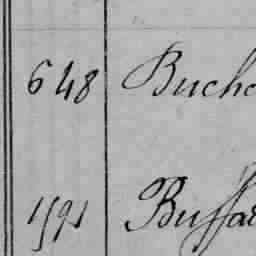 648 Bucho
1591 Buffar